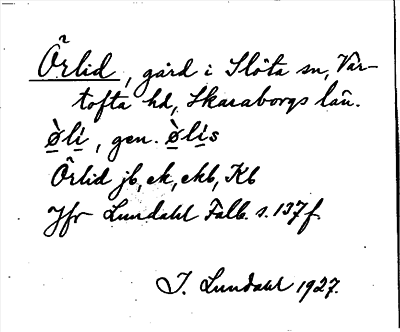 Örlid, gård i Slöta sn, Var-
tofta hd, Skaraborgs län.
Ø̀li, gen. Ø̀lis
Örlid jb, ek, ekb, Kb
Jfr Lundahl Falb. s. 137 f.
I. Lundahl 1927.